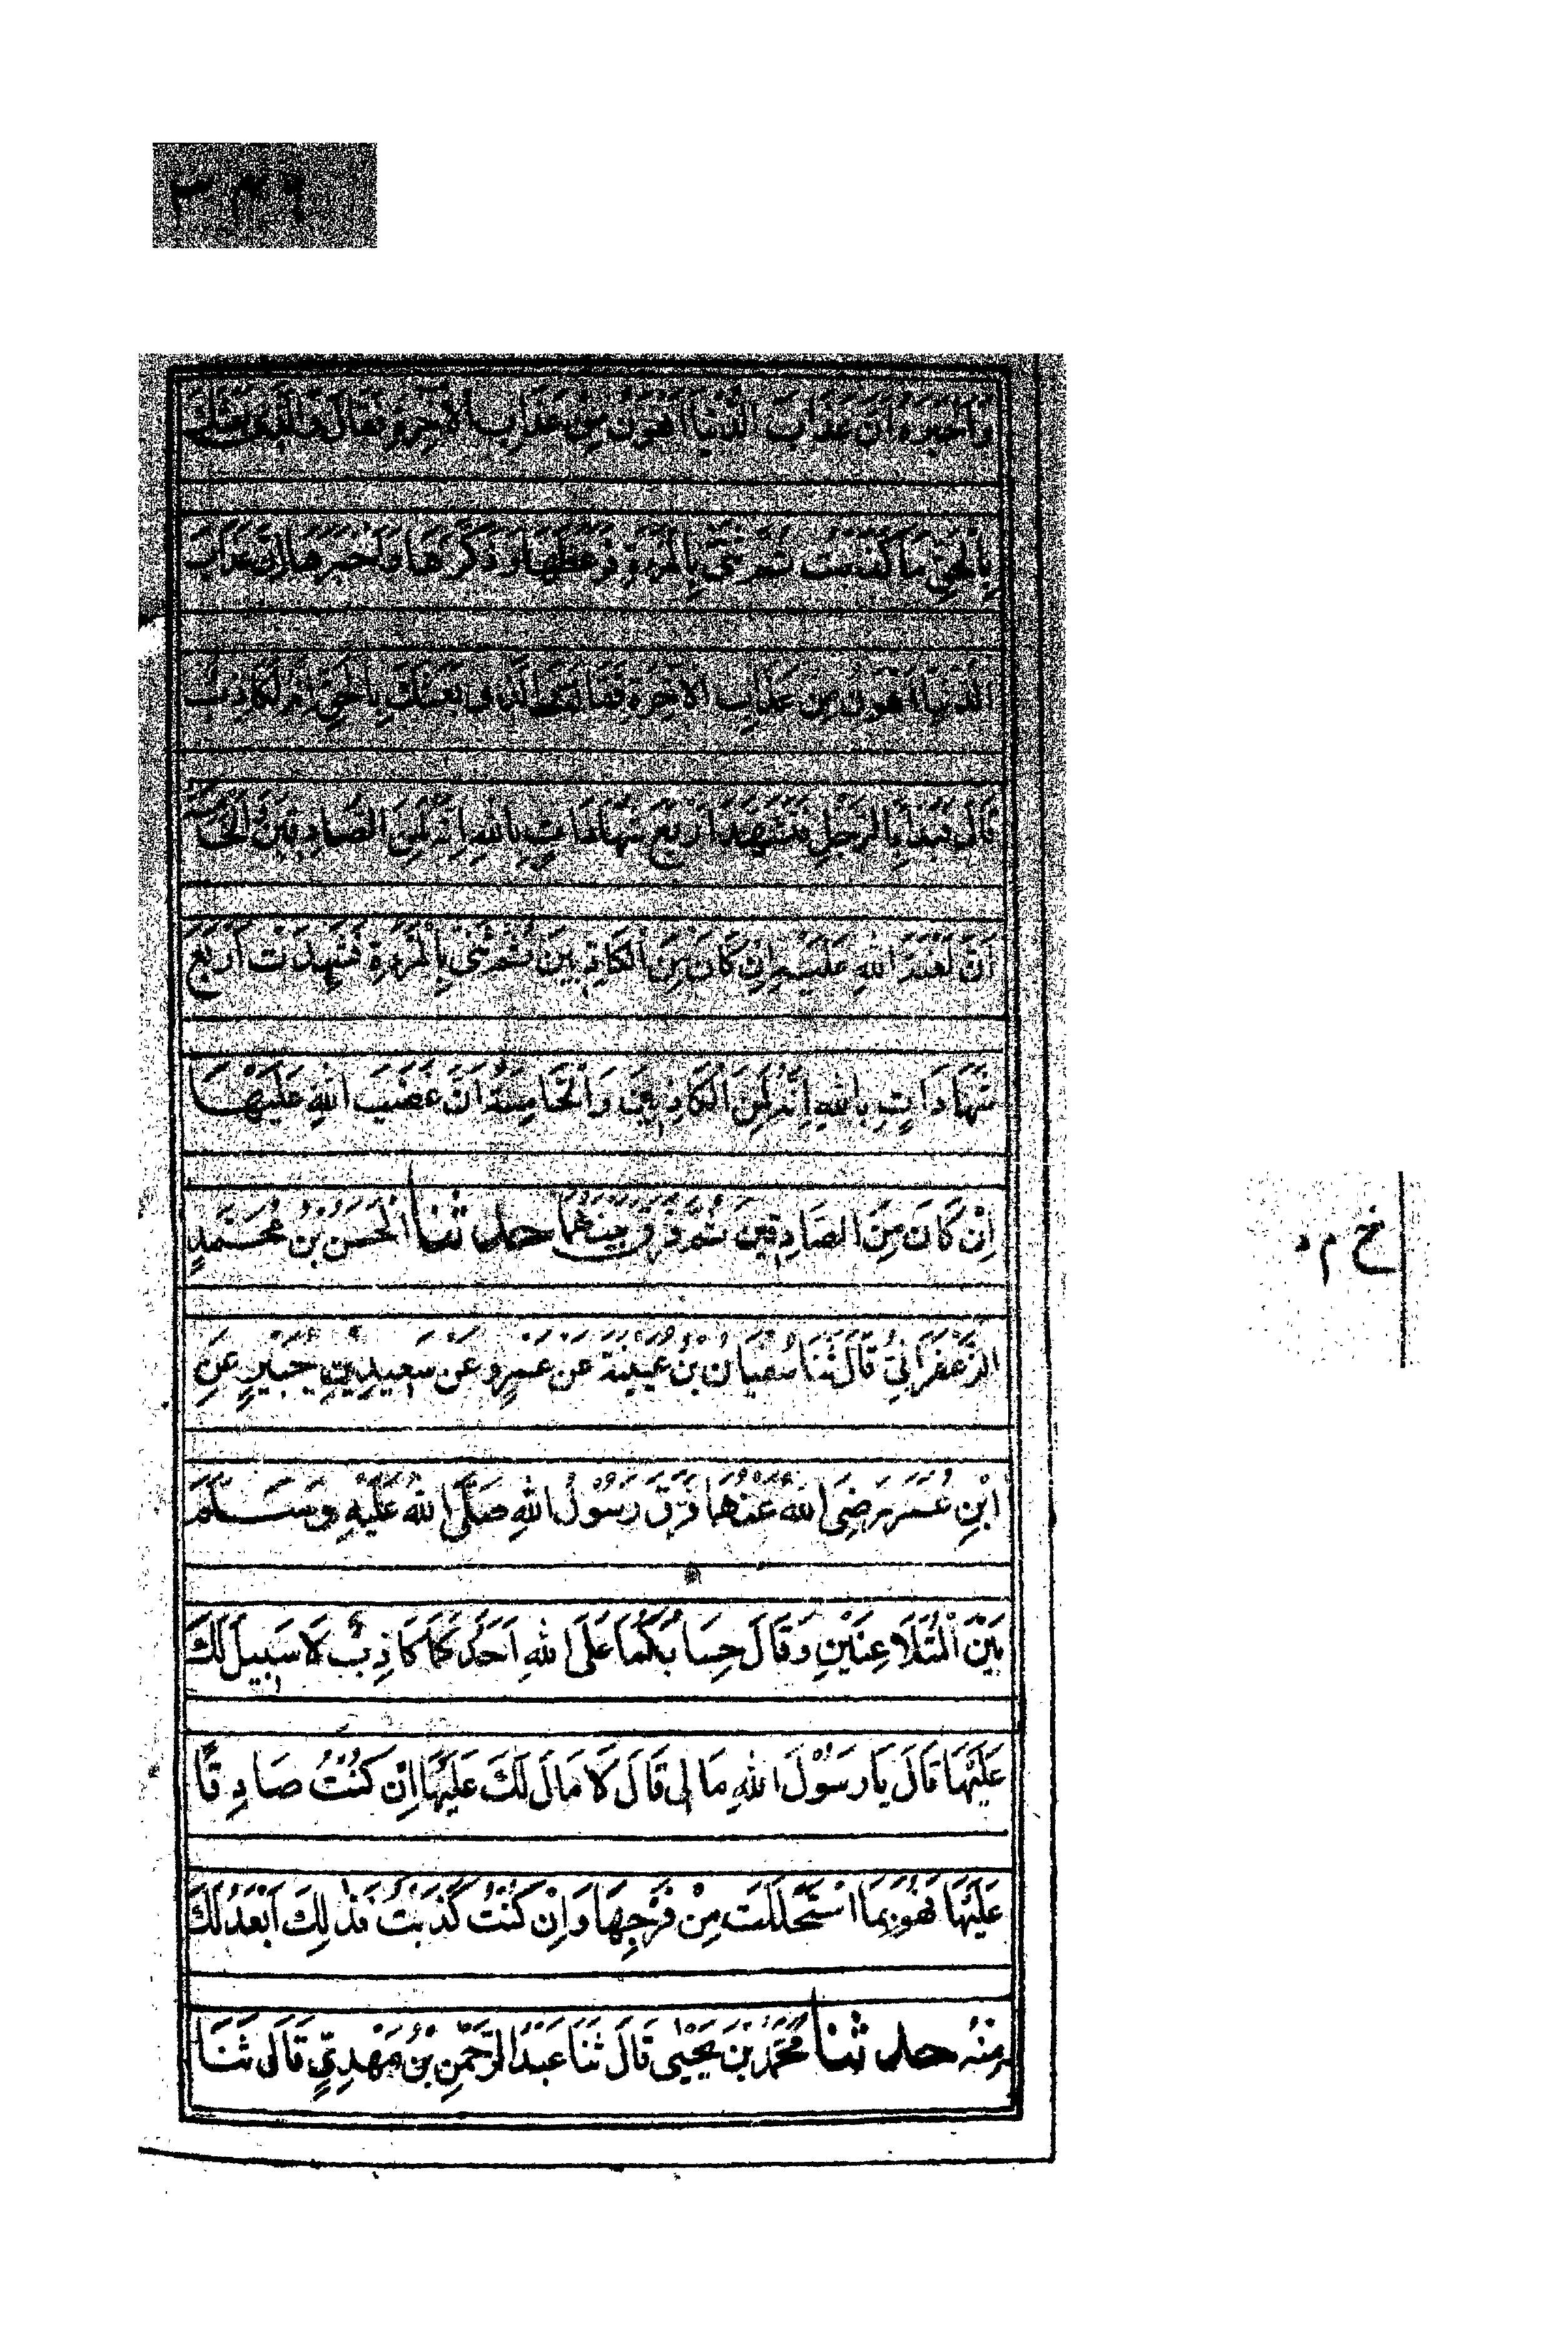 وَأَخْبَرَهُ أَنَّ عَذَابَ الدُّنْيَا أَهْوَنُ مِنْ عَذَابِ الْآخِرَةِ فَقَالَ وَالَّذِي بَعَثَكَ
بِالْحَقِّ مَا كَذَبْتُ ثُمَّ ثَنَّى بِالْمَرْأَةِ فَوَعَظَهَا وَذَكَّرَهَا وَأَخْبَرَهَا أَنَّ عَذَابَ
الدُّنْيَا أَهْوَنُ مِنْ عَذَابِ الْآخِرَةِ فَقَالَتْ وَالَّذِي بَعَثَكَ بِالْحَقِّ إِنَّهُ لَكَاذِبٌ
قَالَ فَبَدَأَ بِالرَّجُلِ فَشَهِدَ أَرْبَعَ شَهَادَاتٍ بِاللهِ إِنَّهُ لَمِنَ الصَّادِقِينَ وَالْخَامِسَةَ
أَنَّ لَعْنَةَ اللهِ عَلَيْهِ إِنْ كَانَ مِنَ الْكَاذِبِينَ ثُمَّ ثَنَّى بِالْمَرْأَةِ فَشَهِدَتْ أَرْبَعَ
شَهَادَاتٍ بِاللهِ إِنَّهُ لَمِنَ الْكَاذِبِينَ وَالْخَامِسَةَ أَنَّ غَضَبَ اللهِ عَلَيْهَا
إِنْ كَانَ مِنَ الصَّادِقِينَ ثُمَّ فَرَّقَ بَيْنَهُمَا حدثنا الْحَسَنُ بْنُ مُحَمَّدٍ
خ م د
الزَّعْفَرَانِيُّ قَالَ ثَنَا سُفْيَانُ بْنُ عُيَيْنَةَ عَنْ عَمْرٍو عَنْ سَعِيدِ بْنِ جُبَيْرٍ عَنِ
ابْنِ عُمَرَ رَضِيَ اللهُ عَنْهُمَا فَرَّقَ رَسُوْلُ اللهِ صَلَّى اللهُ عَلَيْهِ وَسَلَّمَ
بَيْنَ الْمُتَلَاعِنَيْنِ وَقَالَ حِسَابُكُمَا عَلَى اللهِ أَحَدُكُمَا كَاذِبٌ لَا سَبِيلَ لَكَ
عَلَيْهَا قَالَ يَا رَسُوْلَ اللهِ مَا لِي قَالَ لَا مَالَ لَكَ عَلَيْهَا إِنْ كُنْتَ صَادِقًا
عَلَيْهَا فَهُوَ بِمَا اسْتَحْلَلْتَ مِنْ فَرْجِهَا وَإِنْ كُنْتَ كَذَبْتَ فَذَلِكَ أَبْعَدُ لَكَ
مِنْهُ حدثنا مُحَمَّدُ بْنُ يَحْيَى قَالَ ثَنَا عَبْدُ الرَّحْمَنِ بْنُ مَهْدِيٍّ قَالَ ثَنَا